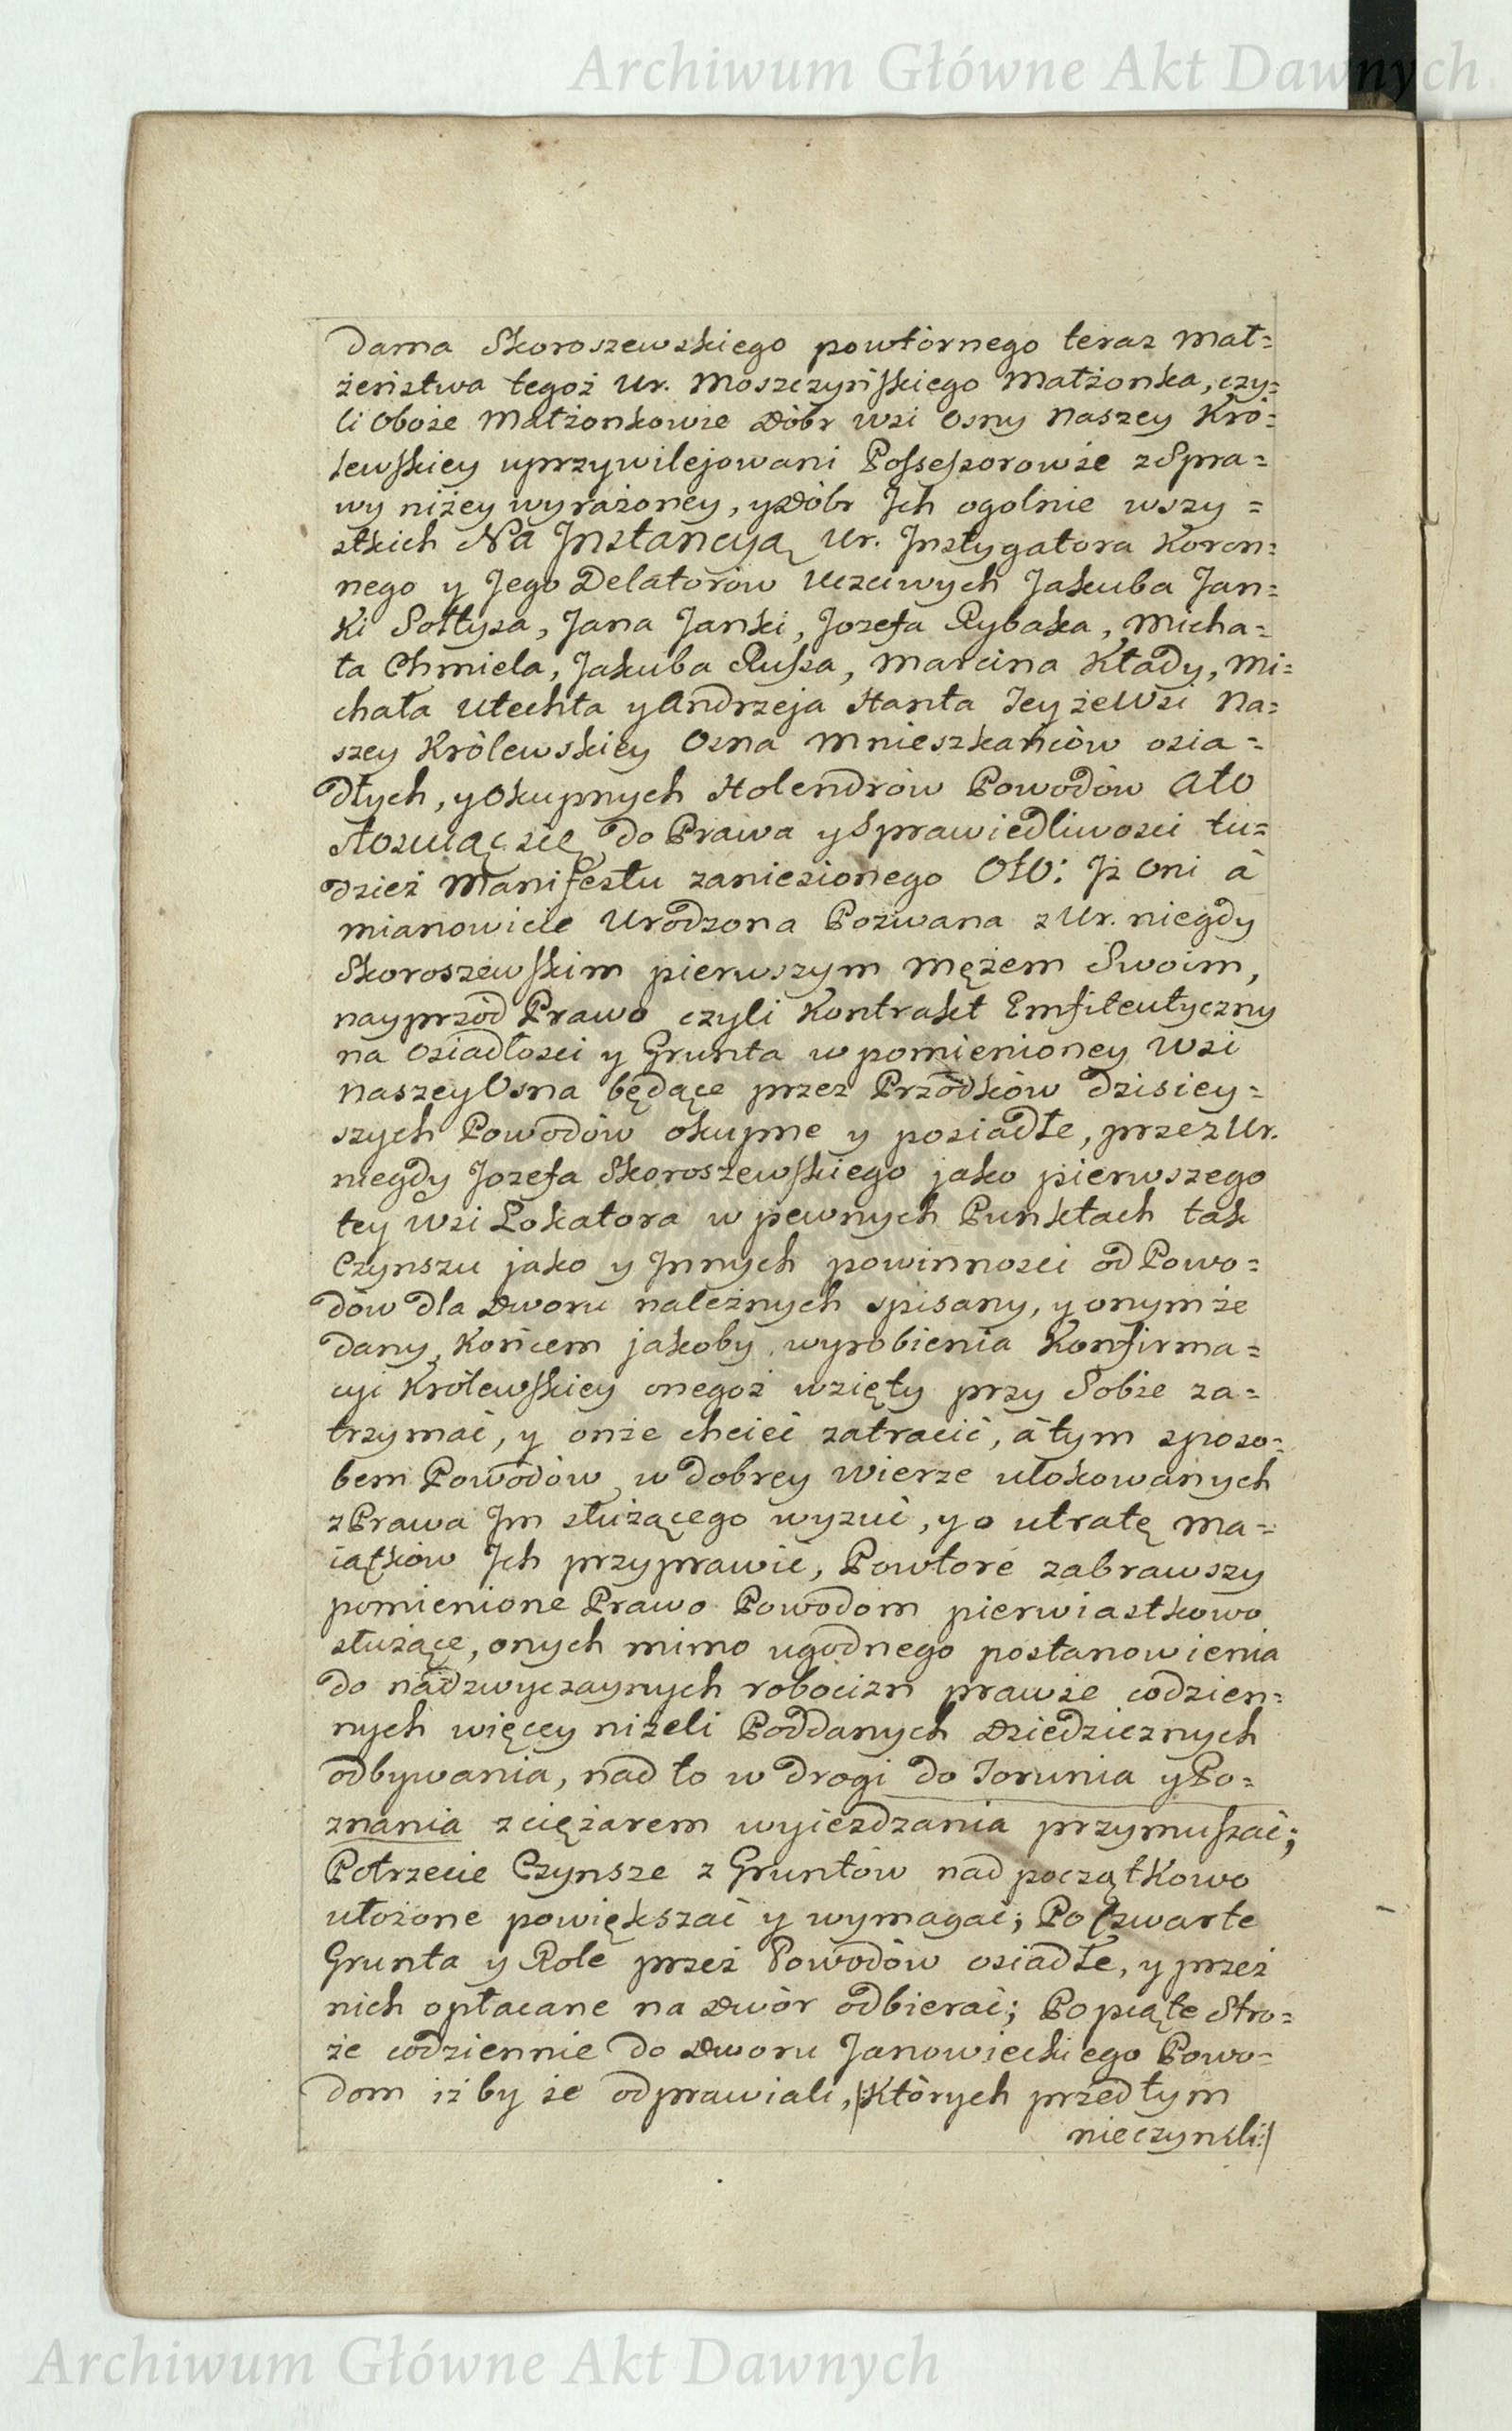 Archiwum Główne Akt Dawnych
dama Skoroszewskiego powtórnego teraz Mał=
żeństwa tegoż Ur. Moszczyńskiego Małżonka, czy=
li Oboie Małżonkowie Dóbr wsi Osny Naszey Kró=
lewskiey uprzywilejowani Possessorowie z Spra=
wy niżey wyrażoney, y Dóbr Jch ogolnie wszy=
stkich Na Jnstancyą Ur. Jnstygatora Koron=
nego y Jego Delatorów Uczciwych Jakuba Jan=
ki Sołtysa, Jana Janki, Jozefa Rybaka, Micha=
ła Chmiela, Jakuba Russa, Marcina Kłady, Mi=
chała Utechta y Andrzeja Hanta Teyże Wsi Na=
szey Królewskiey Osna Mnieszkańców osia=
dłych, y Okupnych Holendrów Powodów Ato
stosuiąc się do Prawa y Sprawiedliwości tu=
dzież Manifestu zaniesionego Oto: Jż Oni à
mianowicie Urodzona Pozwana z Ur. niegdy
Skoroszewskim pierwszym Mężem Swoim,
nayprzód Prawo czyli Kontrakt Emfiteutyczny
na Osiadłości y Grunta w pomienioney Wsi
Naszey Osna będące przez Przodków dzisiey=
szych Powodów okupne y posiadłe, przez Ur.
niegdy Jozefa Skoroszewskiego jako pierwszego
tey Wsi Lokatora w pewnych Punktach tak
Czynszu jako y Jnnych powinności od Powo=
dów dla Dworu należnych spisany, y onymże
dany, Końcem jakoby wyrobienia Konfirma=
cyi Królewskiey onegoż wzięty przy Sobie za=
trzymać, y onże chcieć zatracić, à tym sposo=
bem Powodów w dobrey Wierze ulokowanych
z Prawa Jm służącego wyzuć, y o utratę Ma=
iątków Jch przyprawić, Powtore zabrawszy
pomienione Prawo Powodom pierwiastkowo
służące, onych mimo ugodnego postanowienia
do nadzwyczaynych robocizn prawie codzien=
nych więcey niżeli Poddanych Dziedzicznych
odbywania, nad to w drogi do Torunia y Po=
znania z ciężarem wyieżdzania przymuszać;
Potrzecie Czynsze z Gruntów nad początkowo
ułożone powiększać y wymagać; Poczwarte
Grunta y Role przez Powodów osiadłe, y przez
nich opłacane na Dwór odbierać; Popiąte Stro=
że codziennie do Dworu Janowieckiego Powo=
dom iżby ie odprawiali, /:których przedtym
nieczynili:/
Archiwum Główne Akt Dawnych